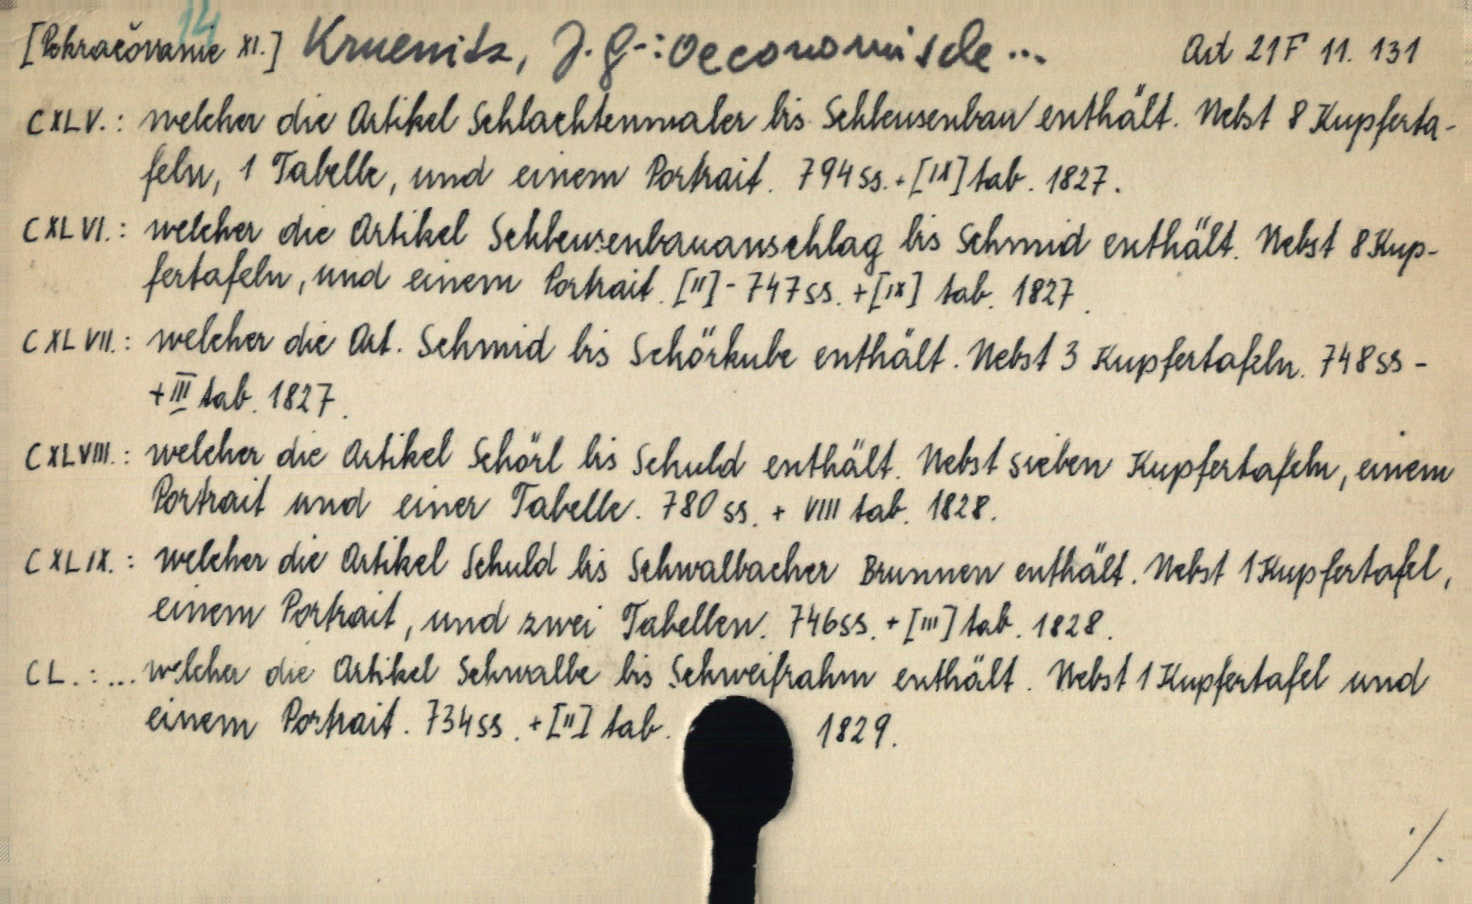 14
[Pokračovanie XI.] Kruenitz, J. G.: Oeconomische ... Ad 21F 11. 131
CXLV.: welcher die Artikel Schlachtenmaler bis Schleusenbau enthält. Nebst 8 Kupferta-
feln, 1 Tabelle, und einem Portrait. 794 ss. + [IX] tab. 1827.
CXLVI.: welcher die Artikel Schleusenbauanschlag bis Schmid enthält. Nebst 8 Kup-
fertafeln, und einem Portrait. [II] - 747 ss. + [IX] tab. 1827.
CXLVII.: welcher die Art. Schmid bis Schörkube enthält. Nebst 3 Kupfertafeln. 748 ss -
+ III tab. 1827.
CXLVIII.: welcher die Artikel Schörl bis Schuld enthält. Nebst sieben Kupfertafeln, einem
Portrait und einer Tabelle. 780 ss. + VIII tab. 1828.
CXLIX.: welcher die Artikel Schuld bis Schwalbacher Brunnen enthält. Nebst 1 Kupfertafel,
einem Portrait, und zwei Tabellen. 746 ss. + [III] tab. 1828.
CL.: ... welcher die Artikel Schwalbe bis Schweifrahm enthält. Nebst 1 Kupfertafel und
einem Portrait. 734 ss. + [II] tab. 1829.
./.